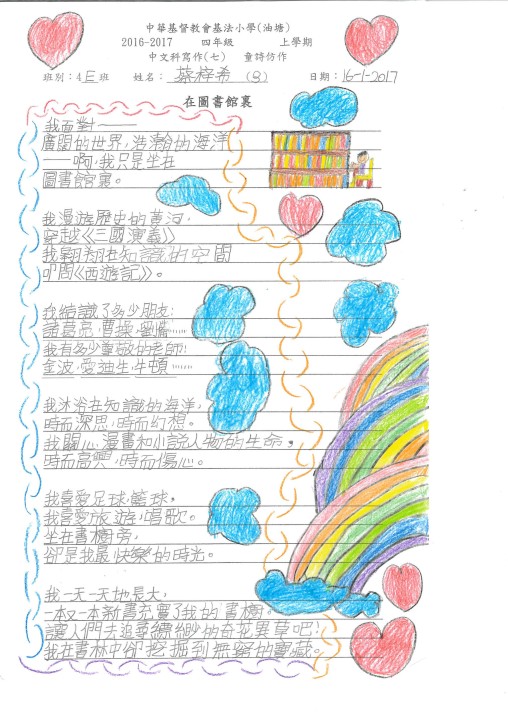 中華基督教會基法小學(油塘)
2016-2017 四年級 上學期
中文科寫作(七) 童詩仿作
班別:4E班 姓名:蔡梓希(8) 日期:16-1-2017
在圖書館裏
我面對——
廣闊的世界,浩瀚的海洋
——啊,我只是坐在
圖書館裏。
我漫遊歷史的黃河,
穿越《三國演義》
我翱翔在知識的空間
叩問《西遊記》。
我結識了多少朋友:
諸葛亮,曹操,劉備……
我有多少尊敬的老師:
金波,愛迪生,牛頓……
我沐浴在知識的海洋,
時而深思,時而幻想。
我關心漫畫和小說人物的生命,
時而高興,時而傷心。
我喜愛足球,籃球,
我喜愛旅遊,唱歌。
坐在書櫥旁,
卻是我最快樂的時光。
我一天一天地長大,
一本又一本新書充實了我的書櫥。
讓人們去追尋縹緲的奇花異草吧!
我在書林中卻挖掘到無窮的寶藏。